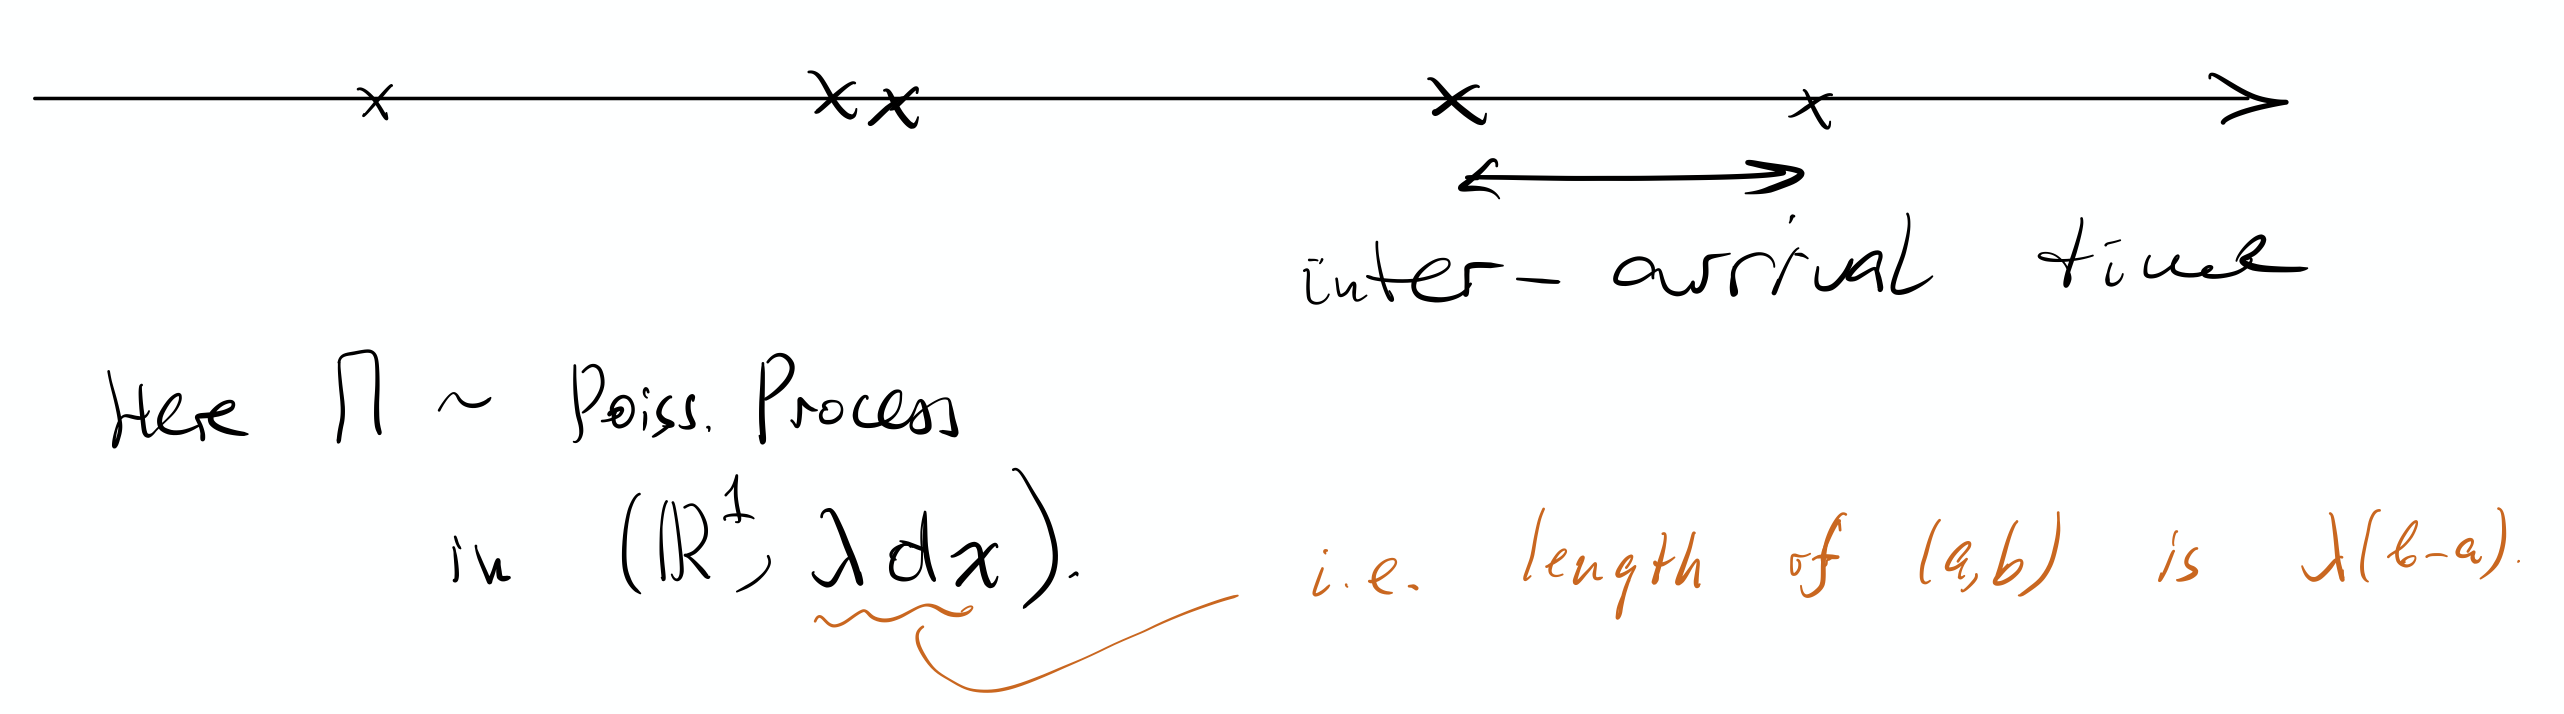 inter-arrival time
Here Π ~ Poiss. Process
in (ℝ¹, λdx). i.e. length of (a,b) is λ(b-a).